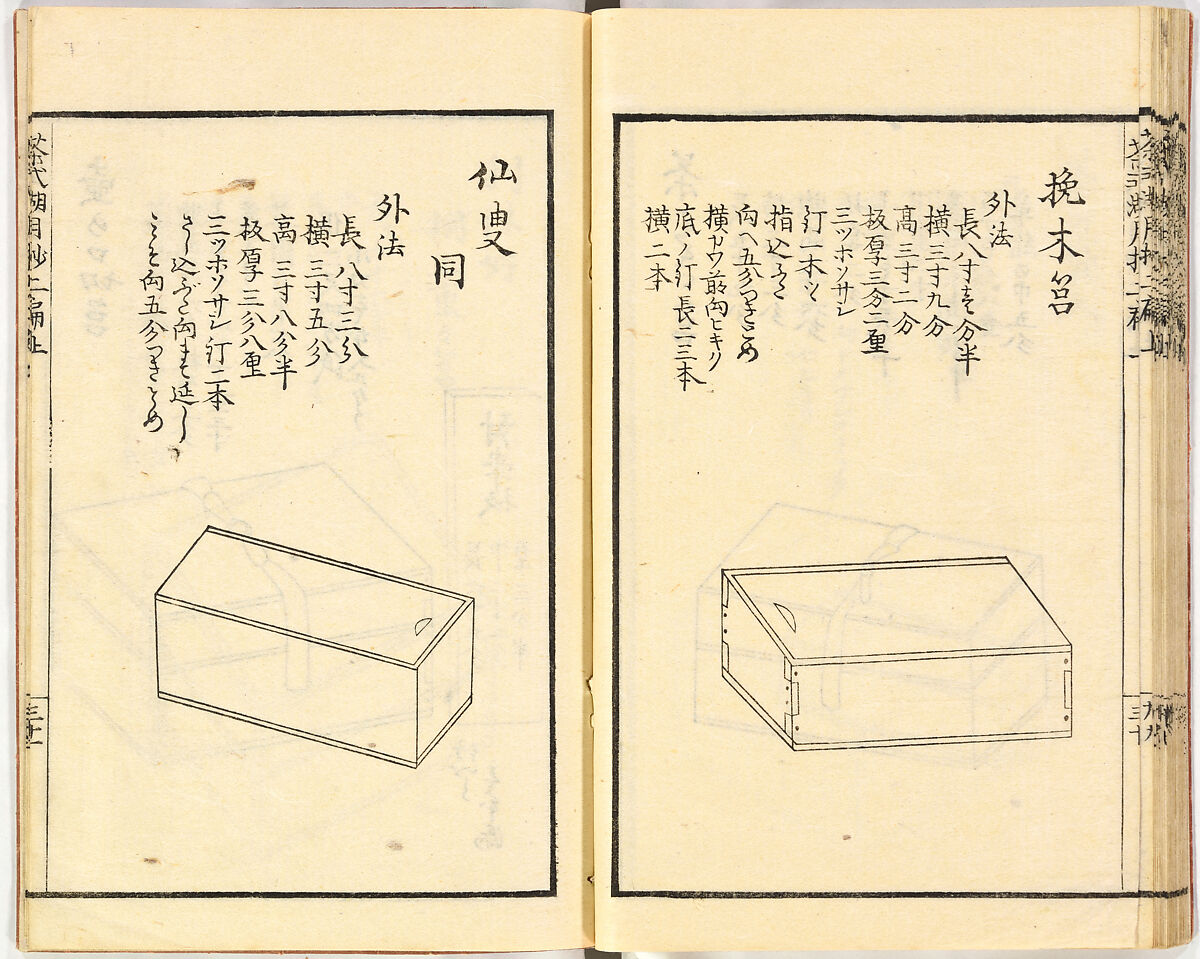 挽木筥
外法
長八寸壱分半
横三寸九分
高三寸二分
板厚三分二厘
三ツホソサシ
釘一本ツヽ
指込ぶた
向へ五分つきとめ
横カウ最向ヒキク
底ハノ釘長二三本
横二本
三十
仙叟
同
外法
長 八寸三分
横 三寸五分
高 三寸八分半
板厚三分八厘
三ツホソサシ釘二本
さし込ぶた向まで延し
向五分つきとめ
茶式湖月抄上編